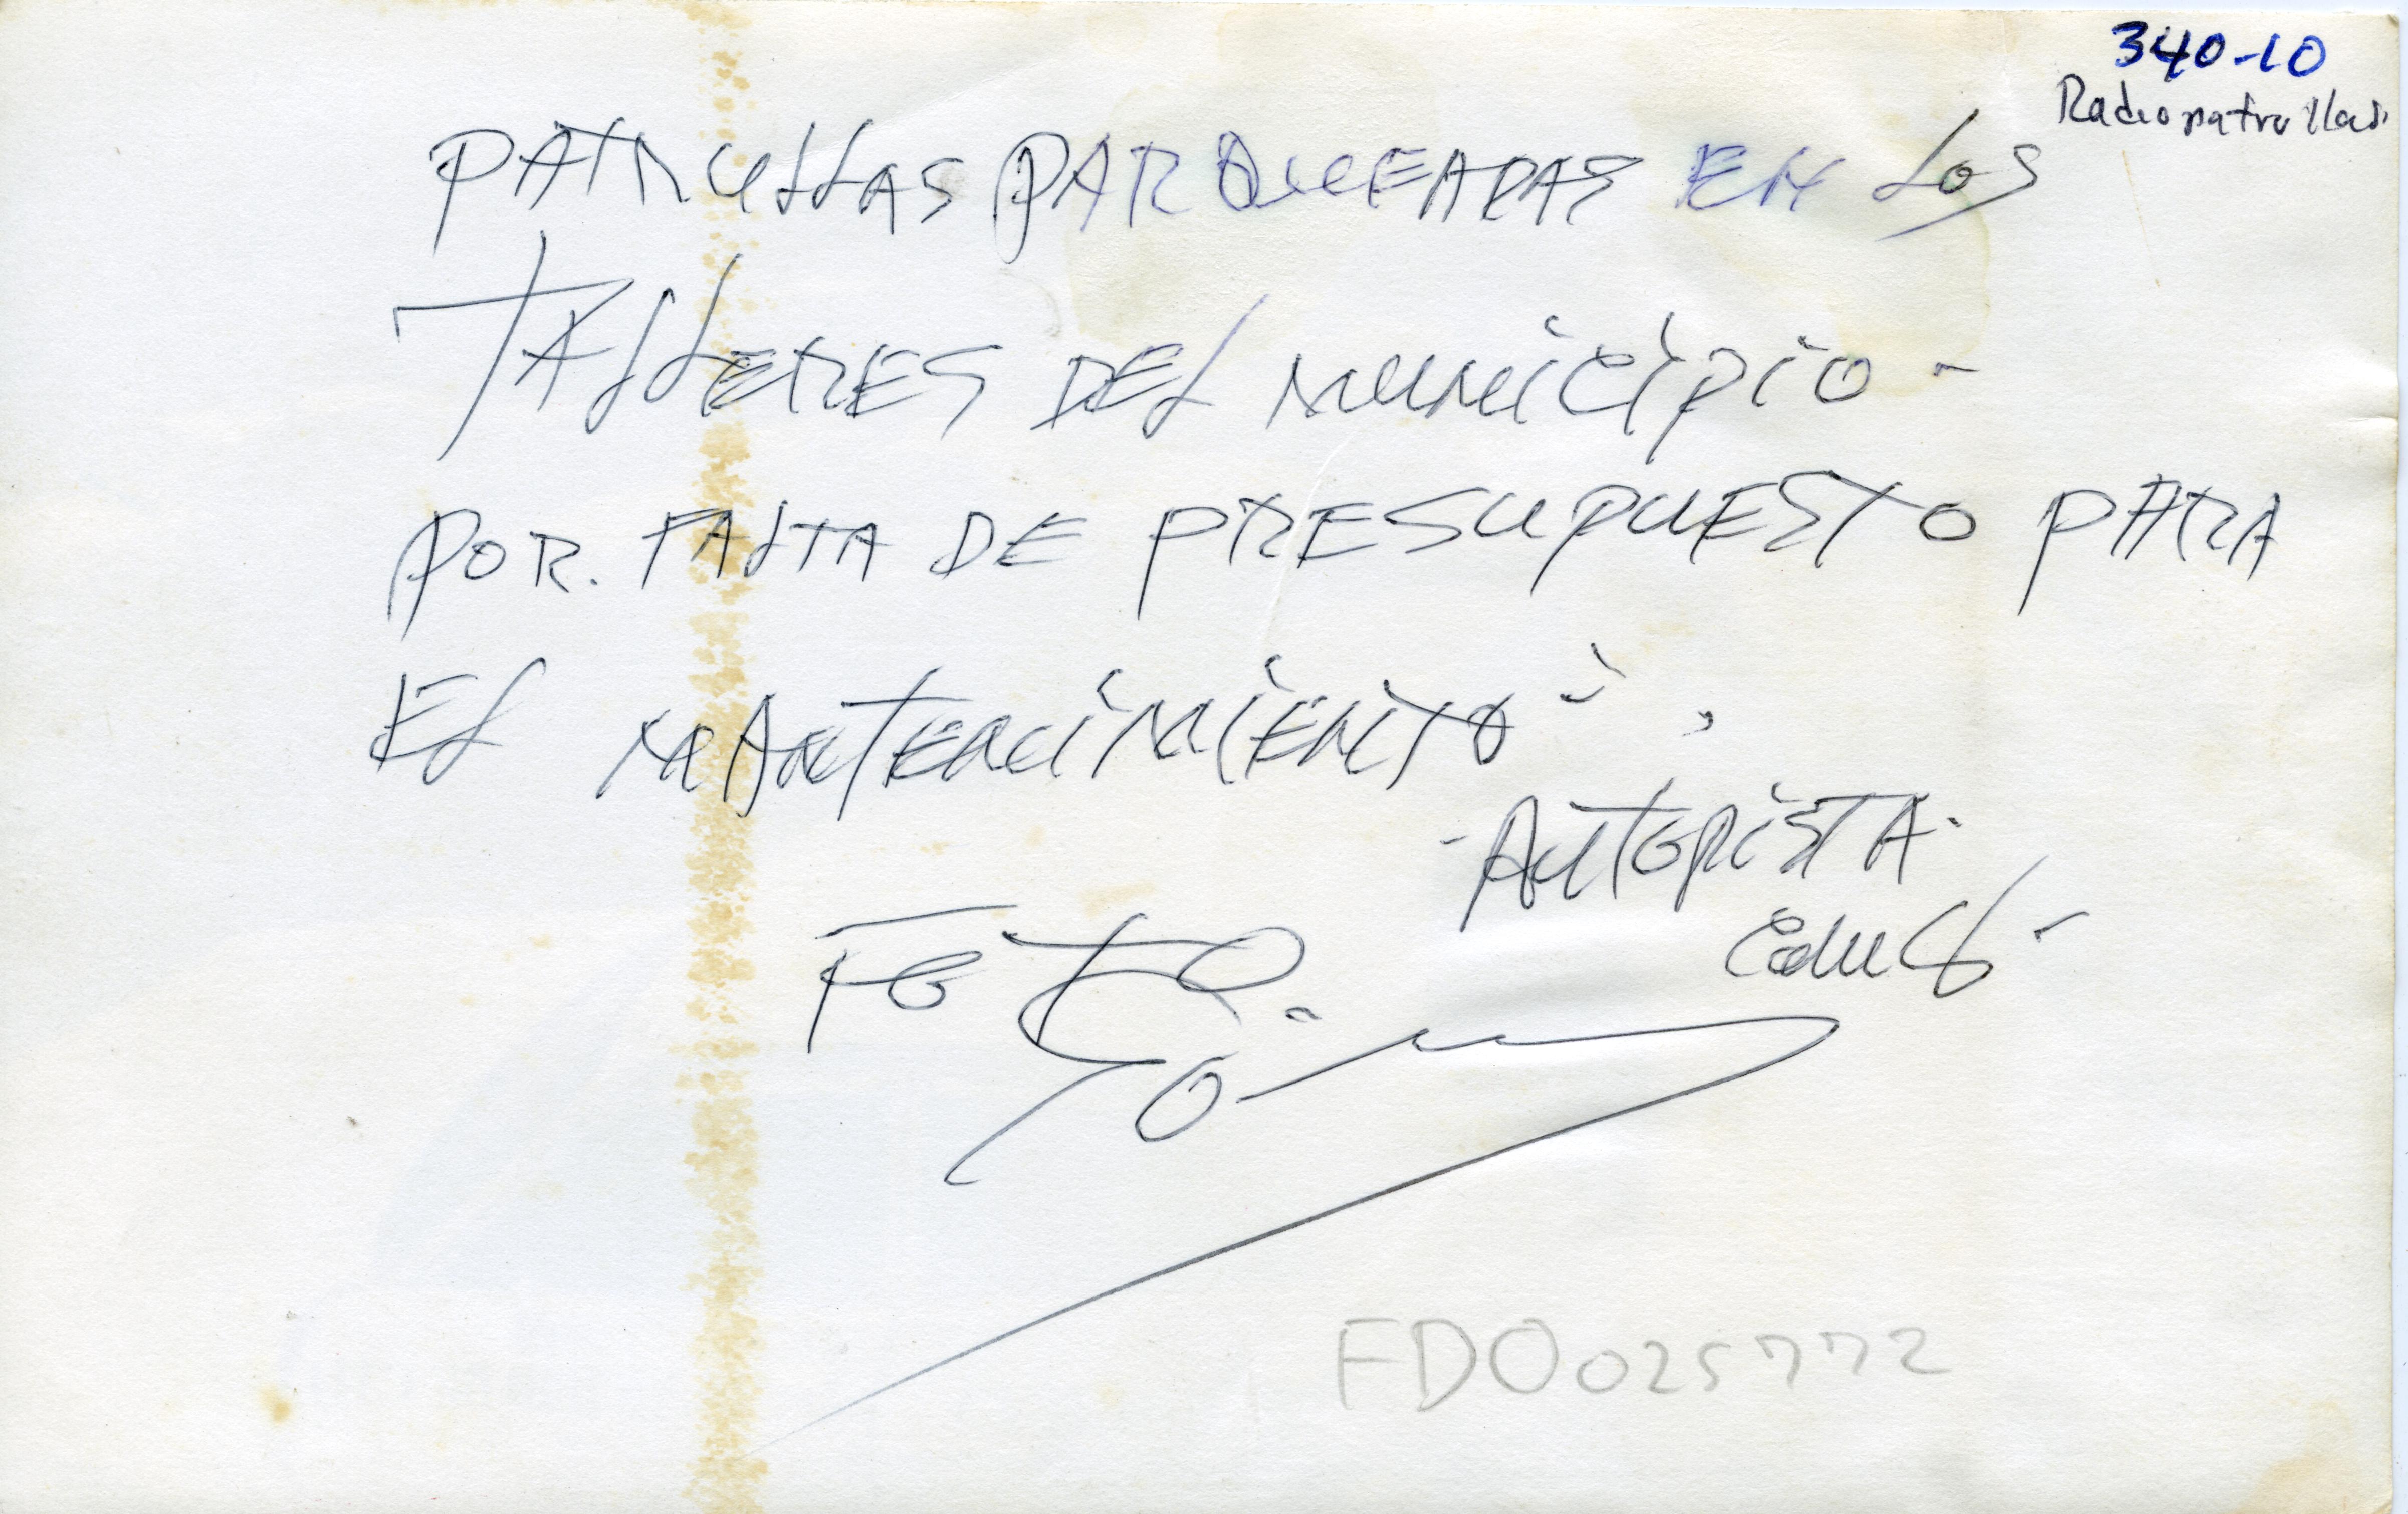 340-10
Radiopatrullas
PATRULLAS PARQUEADAS EN LOS
TALLERES DEL MUNICIPIO -
POR. FALTA DE PRESUPUESTO PARA
EL MANTENIMIENTO
FOTO.
FDO025772